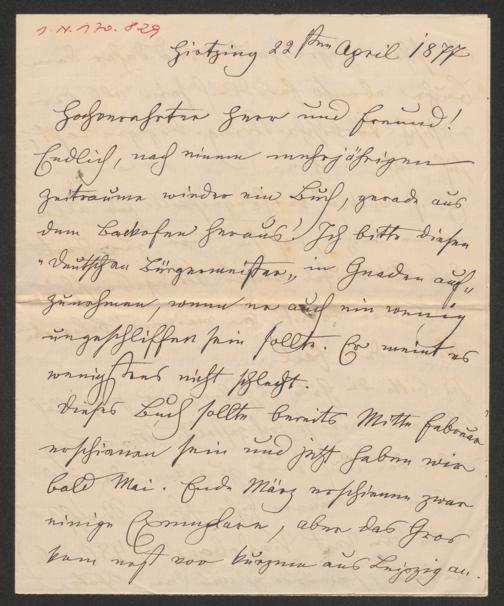 I. N. 170.829
Hietzing 22sten April 1877
Hochverehrter Herr und Freund!
Endlich, nach einem mehrjährigen
Zeitraume wieder ein Buch, gerade aus
dem Backofen heraus! Ich bitte diesen
"deutschen Bürgermeister" in Gnaden auf-
zunehmen, wenn er auch ein wenig
ungeschliffen sein sollte. Er meint es
wenigstens nicht schlecht.
Dieses Buch sollte bereits Mitte Februar
erschienen sein und jetzt haben wir
bald Mai. Ende März erschienen zwar
einige Exemplare, aber das Gros
kam erst vor kurzem aus Leipzig an.